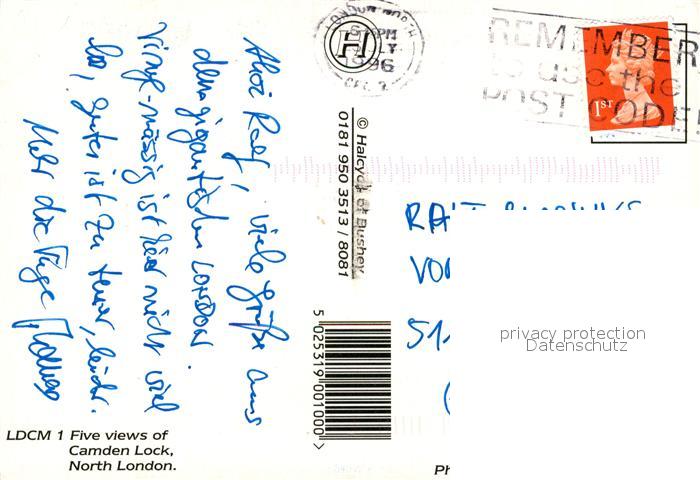 Ahoi Ralf, viele Grüße aus
dem gigantischen LONDON.
Vinyl-mässig ist hier nicht viel
los, gutes ist zu teuer, leider.
Mehr die Tage
LDCM 1 Five views of
Camden Lock,
North London.
© Halcyon of Bushey.
0181 950 3513 / 8081
5 025319 001000 >
LONDON
PM
1996
H
REMEMBER
to use the
POST CODE!
1ST
RA
VO
51
privacy protection
Datenschutz
Ph